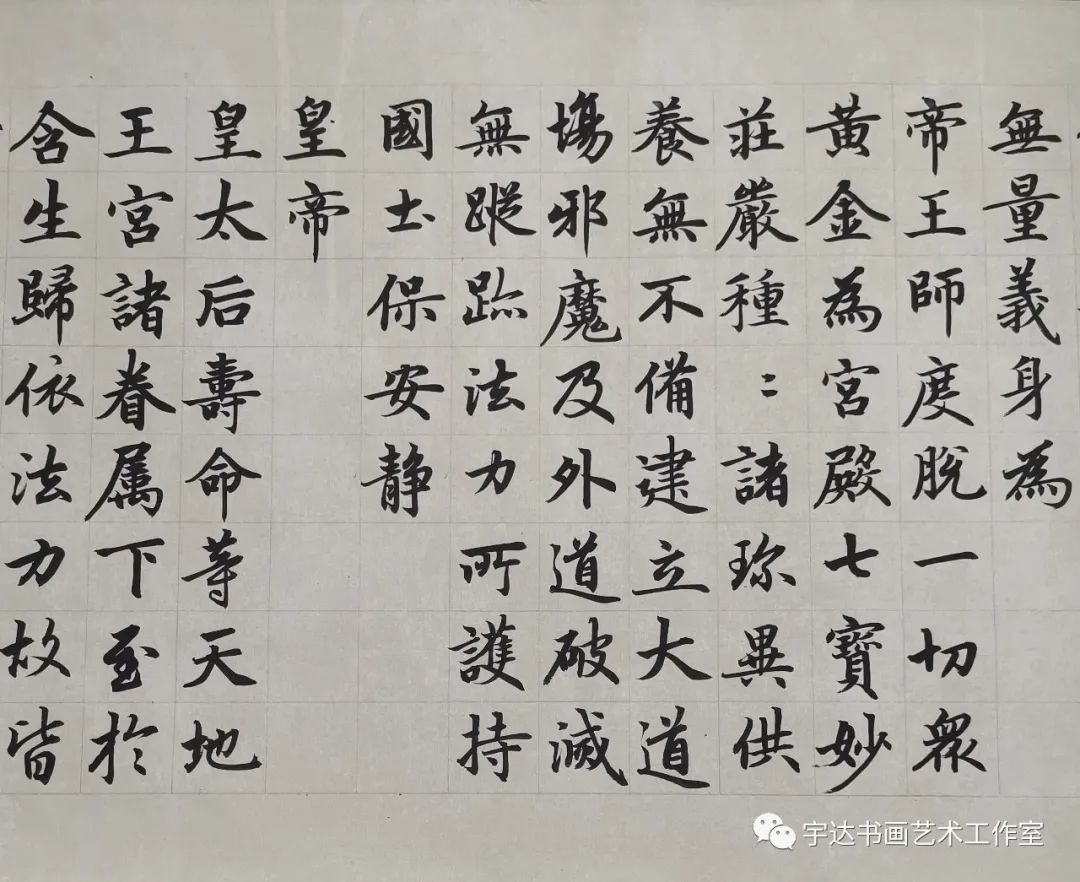 無量義身為
帝王師度脫一切眾
黃金為宮殿七寶妙
莊嚴種〻諸珎異供
養無不備建立大道
場邪魔及外道破滅
無蹤跡法力所護持
國土保安静
皇帝
皇太后壽命等天地
王宮諸眷属下至於
含生歸依法力故皆
宇达书画艺术工作室